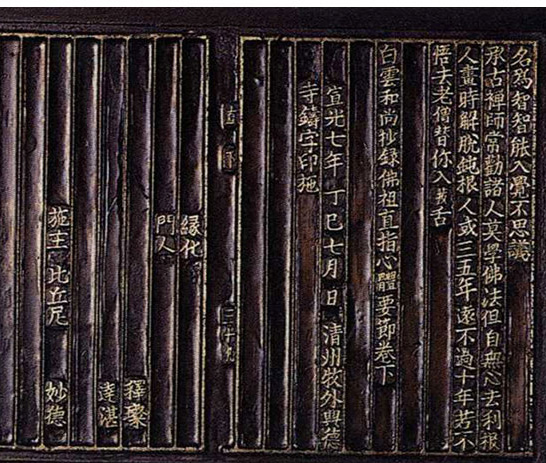 名爲智智能入覺不思議
承古禪師常勸諸人莫學佛法但自無心去利根
人晝時解脫鈍根人或三五年遠不過十年若不
悟去老僧替你入拔舌
白雲和尚抄錄佛祖直指心體要節卷下
宣光七年丁巳七月 日 清州牧外興德
寺鑄字印施
三十九
緣化
門人
釋璨
達湛
施主 比丘尼 妙德